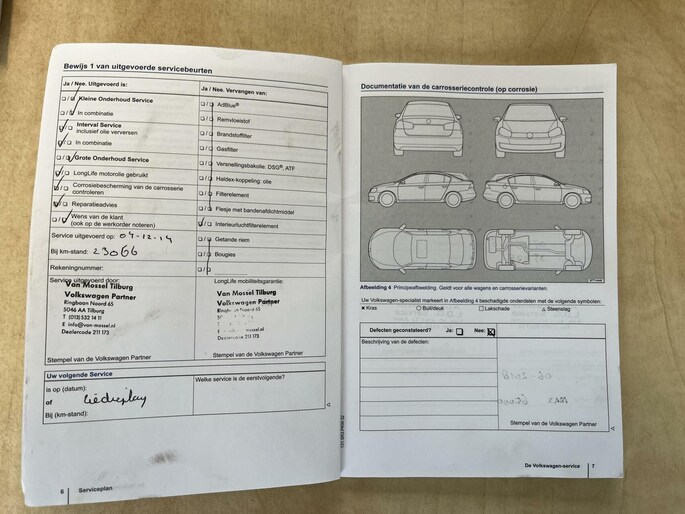 Bewijs 1 van uitgevoerde servicebeurten
Ja / Nee. Uitgevoerd is:
Kleine Onderhoud Service
In combinatie
Interval Service
inclusief olie verversen
In combinatie
Grote Onderhoud Service
LongLife motorolie gebruikt
Corrosiebescherming van de carrosserie
controleren
Reparatieadvies
Wens van de klant
(ook op de werkorder noteren)
Service uitgevoerd op: 04-12-14
Bij km-stand: 23066
Rekeningnummer:
Service uitgevoerd door:
Van Mossel Tilburg
Volkswagen Partner
Ringbaan Noord 65
5046 AA Tilburg
T (013) 532 14 11
E info@van-mossel.nl
Dealercode 211 173
Stempel van de Volkswagen Partner
Ja / Nee. Vervangen van:
AdBlue®
Remvloeistof
Brandstoffilter
Gasfilter
Versnellingsbakolie: DSG®, ATF
Haldex-koppeling: olie
Filterelement
Flesje met bandenafdichtmiddel
Interieurluchtfilterelement
Getande riem
Bougies
LongLife mobiliteitsgarantie:
Van Mossel Tilburg
Volkswagen Partner
Ringbaan Noord 65
Dealercode 211 173
Stempel van de Volkswagen Partner
Uw volgende Service
is op (datum):
of
Bij (km-stand):
Welke service is de eerstvolgende?
6 Serviceplan
Documentatie van de carrosseriecontrole (op corrosie)
Afbeelding 4 Principeafbeelding. Geldt voor alle wagens en carrosserievarianten.
Uw Volkswagen-specialist markeert in Afbeelding 4 beschadigde onderdelen met de volgende symbolen:
× Kras ○ Buil/deuk □ Lakschade △ Steenslag
Defecten geconstateerd? Ja: Nee:
Beschrijving van de defecten:
Stempel van de Volkswagen Partner
De Volkswagen-service 7